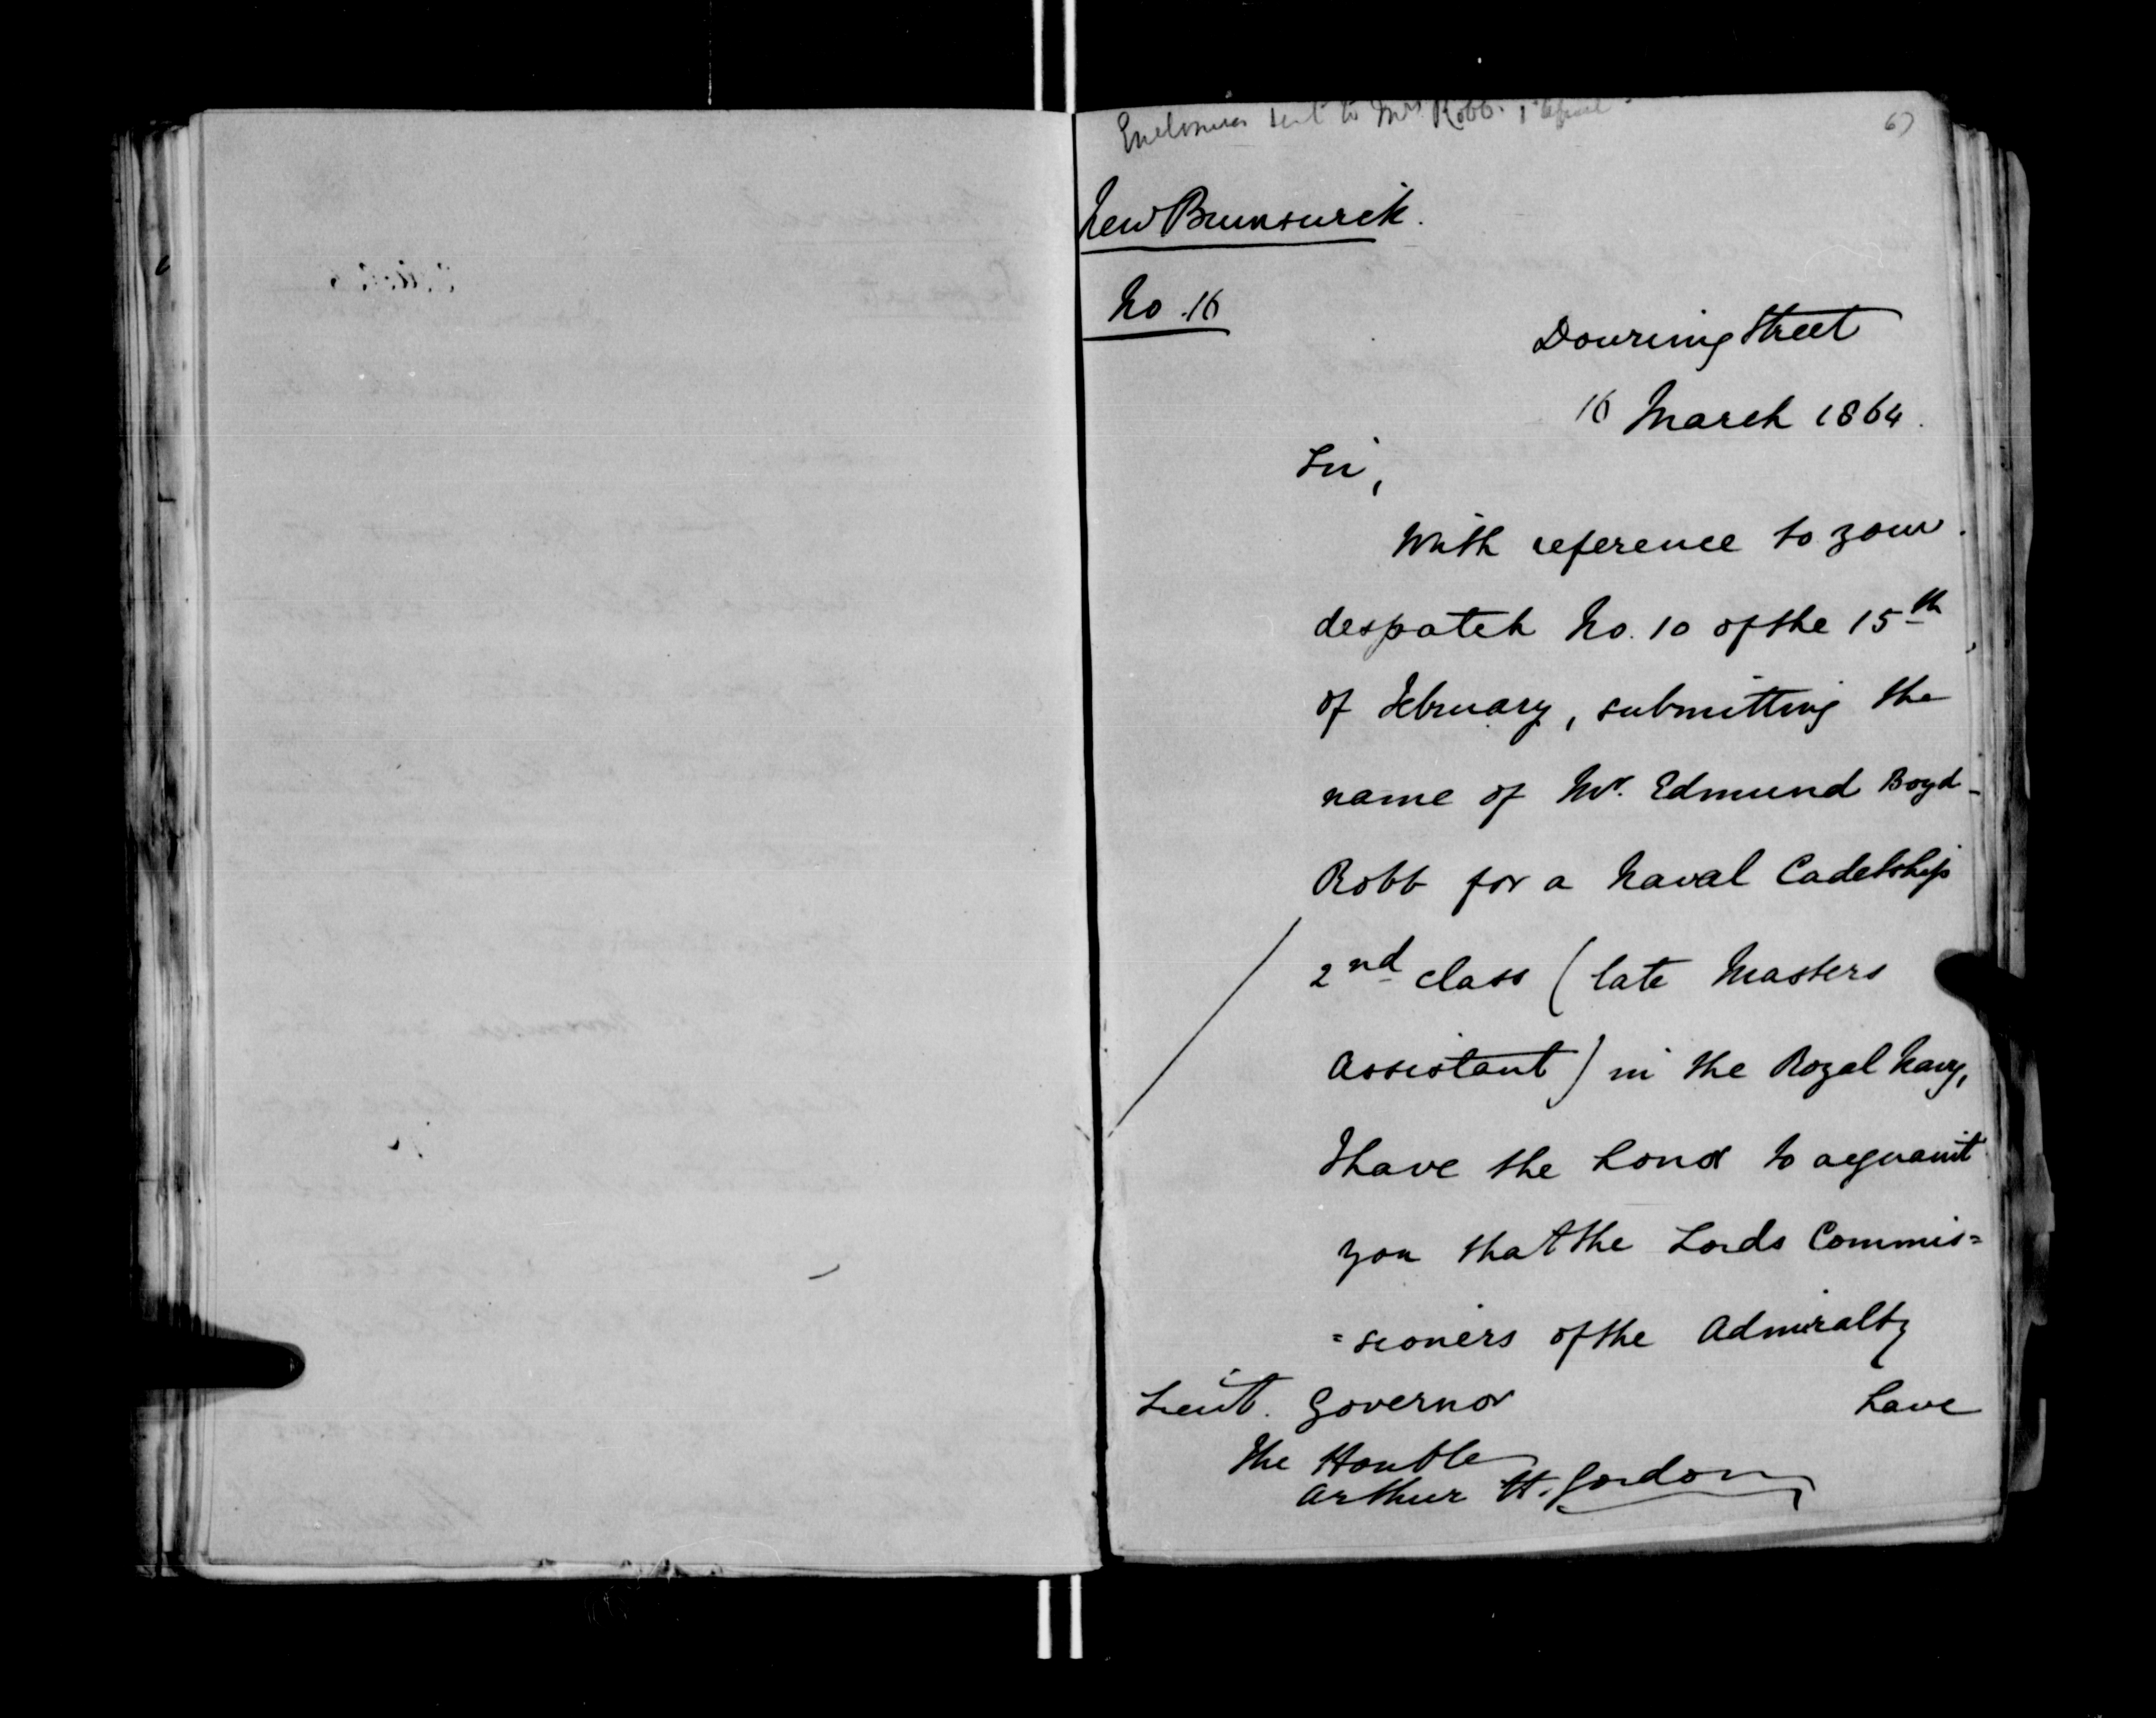 Enclosures sent to Mrs Robb. 1 April
67
New Brunswick.
No. 16
Downing Street
16 March 1864.
Sir,
With reference to your
despatch No. 10 of the 15th
of February, submitting the
name of Mr. Edmund Boyd-
Robb for a Naval Cadetship
2nd class (late Masters
Assistant) in the Royal Navy,
I have the honor to acquaint
you that the Lords Commis=
=sioners of the Admiralty
have
Lieut. Governor
The Honble
Arthur H. Gordon